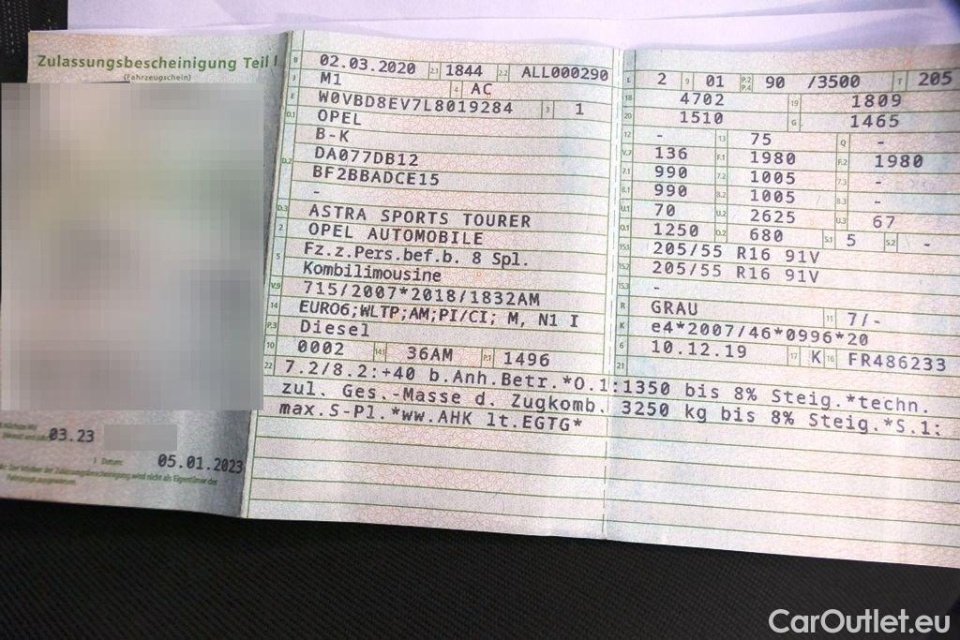 Zulassungsbescheinigung Teil I
(Fahrzeugschein)
03.23
05.01.2023
B 02.03.2020 2.1 1844 2.2 ALL000290
J M1 4 AC
E W0VBD8EV7L8019284 3 1
D.1 OPEL
B-K
D.2 DA077DB12
BF2BBADCE15
-
D.3 ASTRA SPORTS TOURER
2 OPEL AUTOMOBILE
5 Fz.z.Pers.bef.b. 8 Spl.
Kombilimousine
V.9 715/2007*2018/1832AM
14 EURO6;WLTP;AM;PI/CI; M, N1 I
P.3 Diesel
10 0002 14.1 36AM P.1 1496
L 2 9 01 P.2 P.4 90 /3500 T 205
18 4702 19 1809
20 1510 G 1465
12 - 13 75 Q -
V.7 136 F.1 1980 F.2 1980
7.1 990 7.2 1005 7.3 -
8.1 990 8.2 1005 8.3 -
U.1 70 U.2 2625 U.3 67
O.1 1250 O.2 680 S.1 5 S.2 -
15.1 205/55 R16 91V
15.2 205/55 R16 91V
15.3 -
R GRAU 11 7/-
K e4*2007/46*0996*20
6 10.12.19 17 K 16 FR486233
21
22 7.2/8.2:+40 b.Anh.Betr.*O.1:1350 bis 8% Steig.*techn.
zul. Ges.-Masse d. Zugkomb. 3250 kg bis 8% Steig.*S.1:
max.S-Pl.*ww.AHK lt.EGTG*
CarOutlet.eu